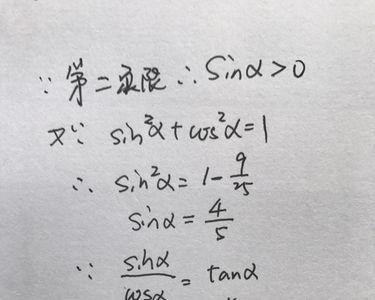 ∵ 第二象限 ∴ sinα>0
又∵ sin²α+cos²α=1
∴ sin²α=1-9/25
sinα=4/5
∵ sinα/cosα=tanα